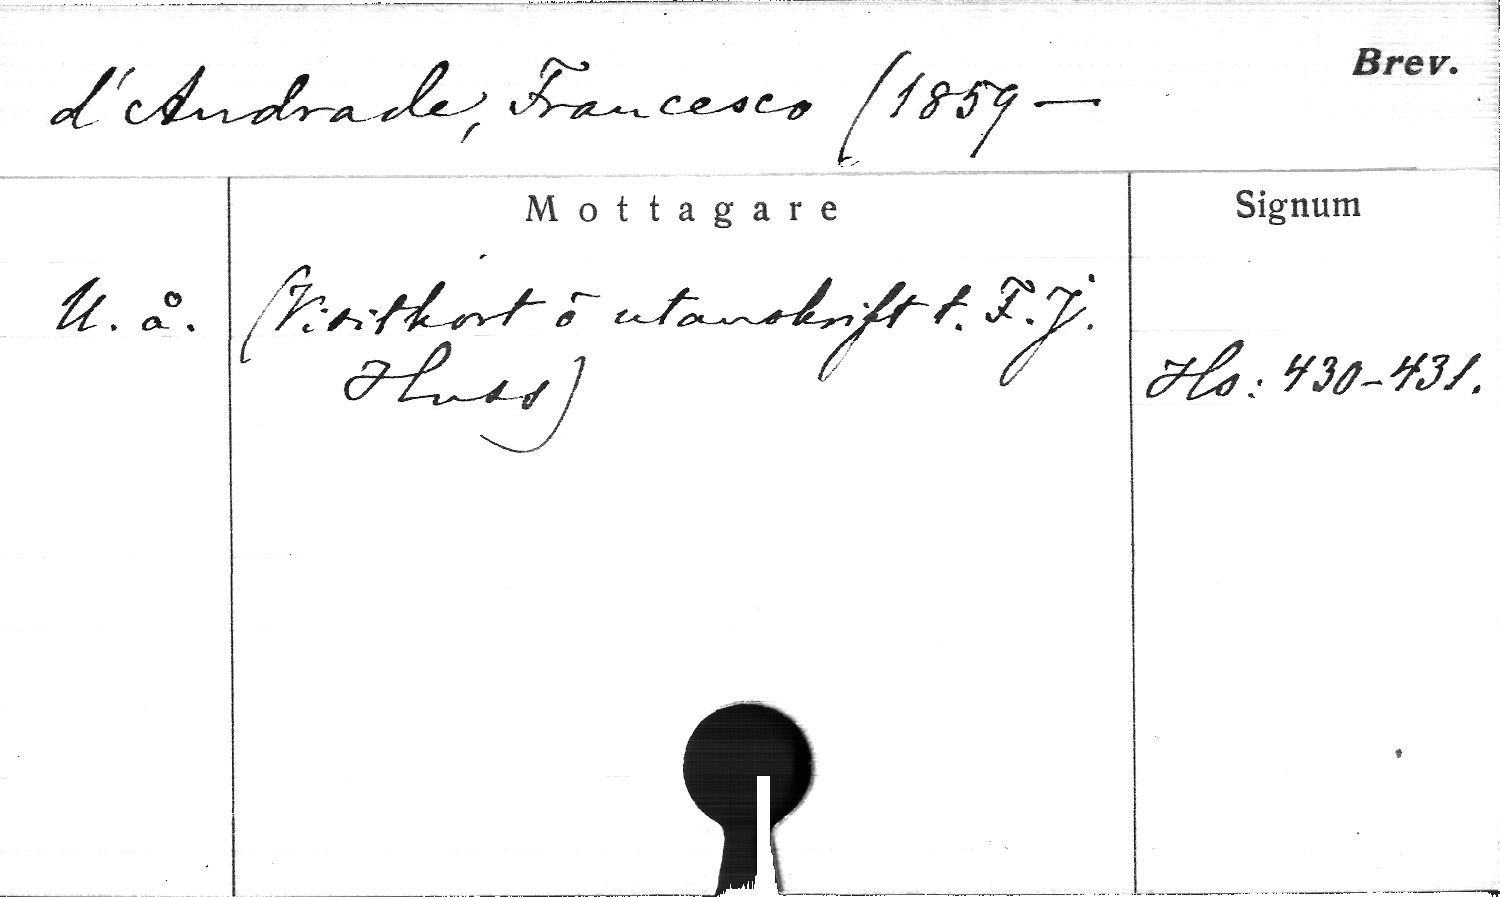 Brev.
d'Andrade, Francesco (1859 —
Mottagare
Signum
U. å. (Visitkort o utanskrift t. F. J.
Huss)
Hs: 430-431.